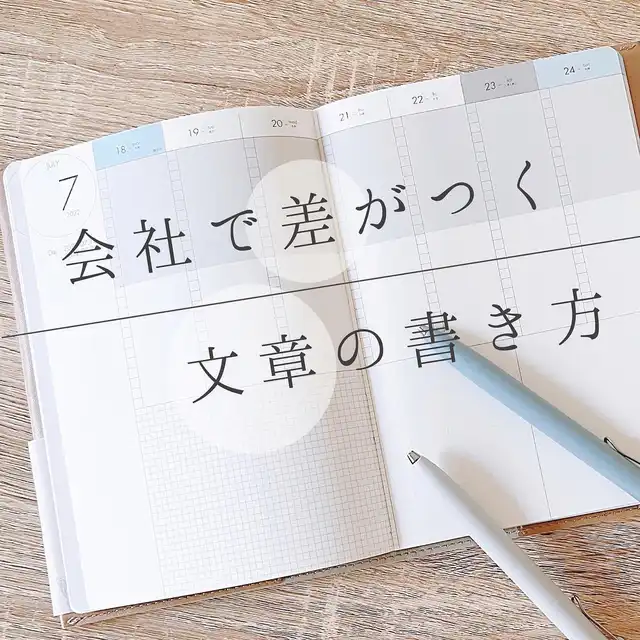 会社で差がつく
文章の書き方
JULY
7
18
19
20
21
22
23
24